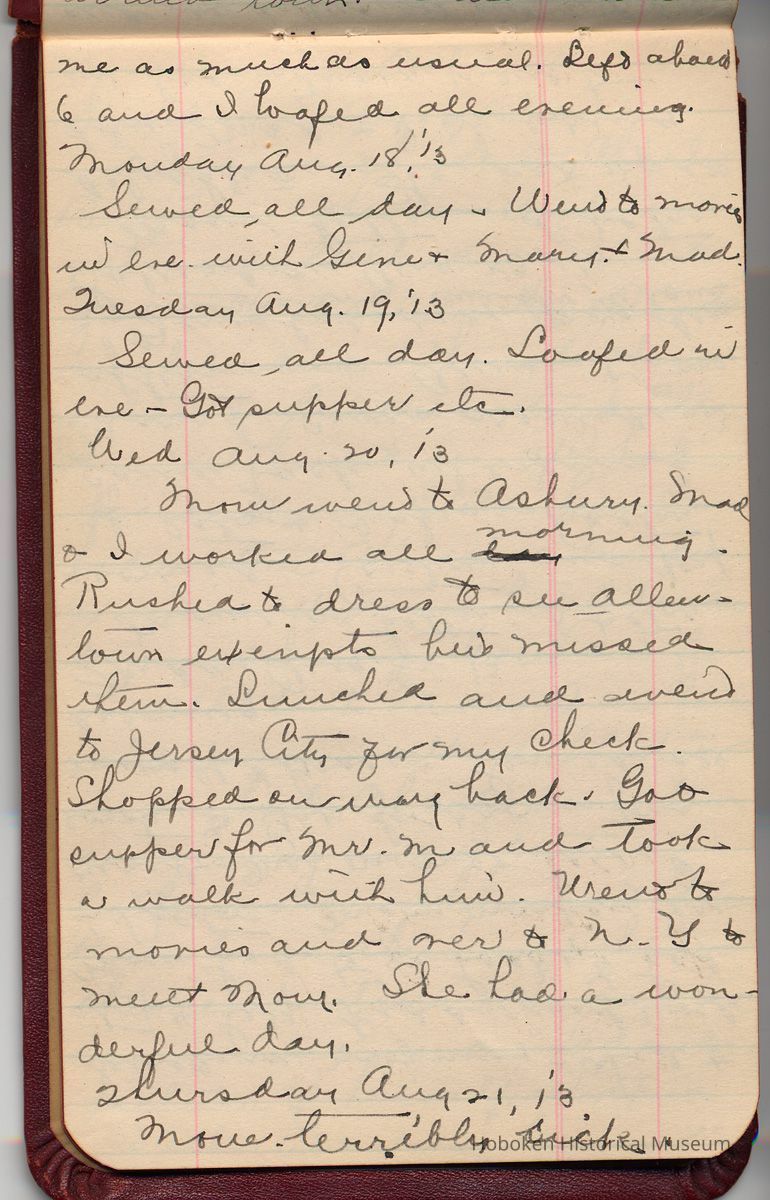 me as much as usual. Left about
6 and I loafed all evening.
Monday Aug. 18, '13
Sewed all day. Went to movies
in eve. with Gene + Mary + Mad.
Tuesday Aug. 19, '13
Sewed all day. Loafed in
eve - Got supper etc.
Wed Aug. 20, '13
Mom went to Asbury. Mad
& I worked all morning.
Rushed to dress to see Allen-
town exempts but missed
them. Lunched and went
to Jersey City for my check.
Shopped on way back. Got
supper for Mr. M and took
a walk with him. Went to
movies and over to N.Y to
meet Mom. She had a won-
derful day.
Thursday Aug 21, '13
Mom terribly sick.
Hoboken Historical Museum